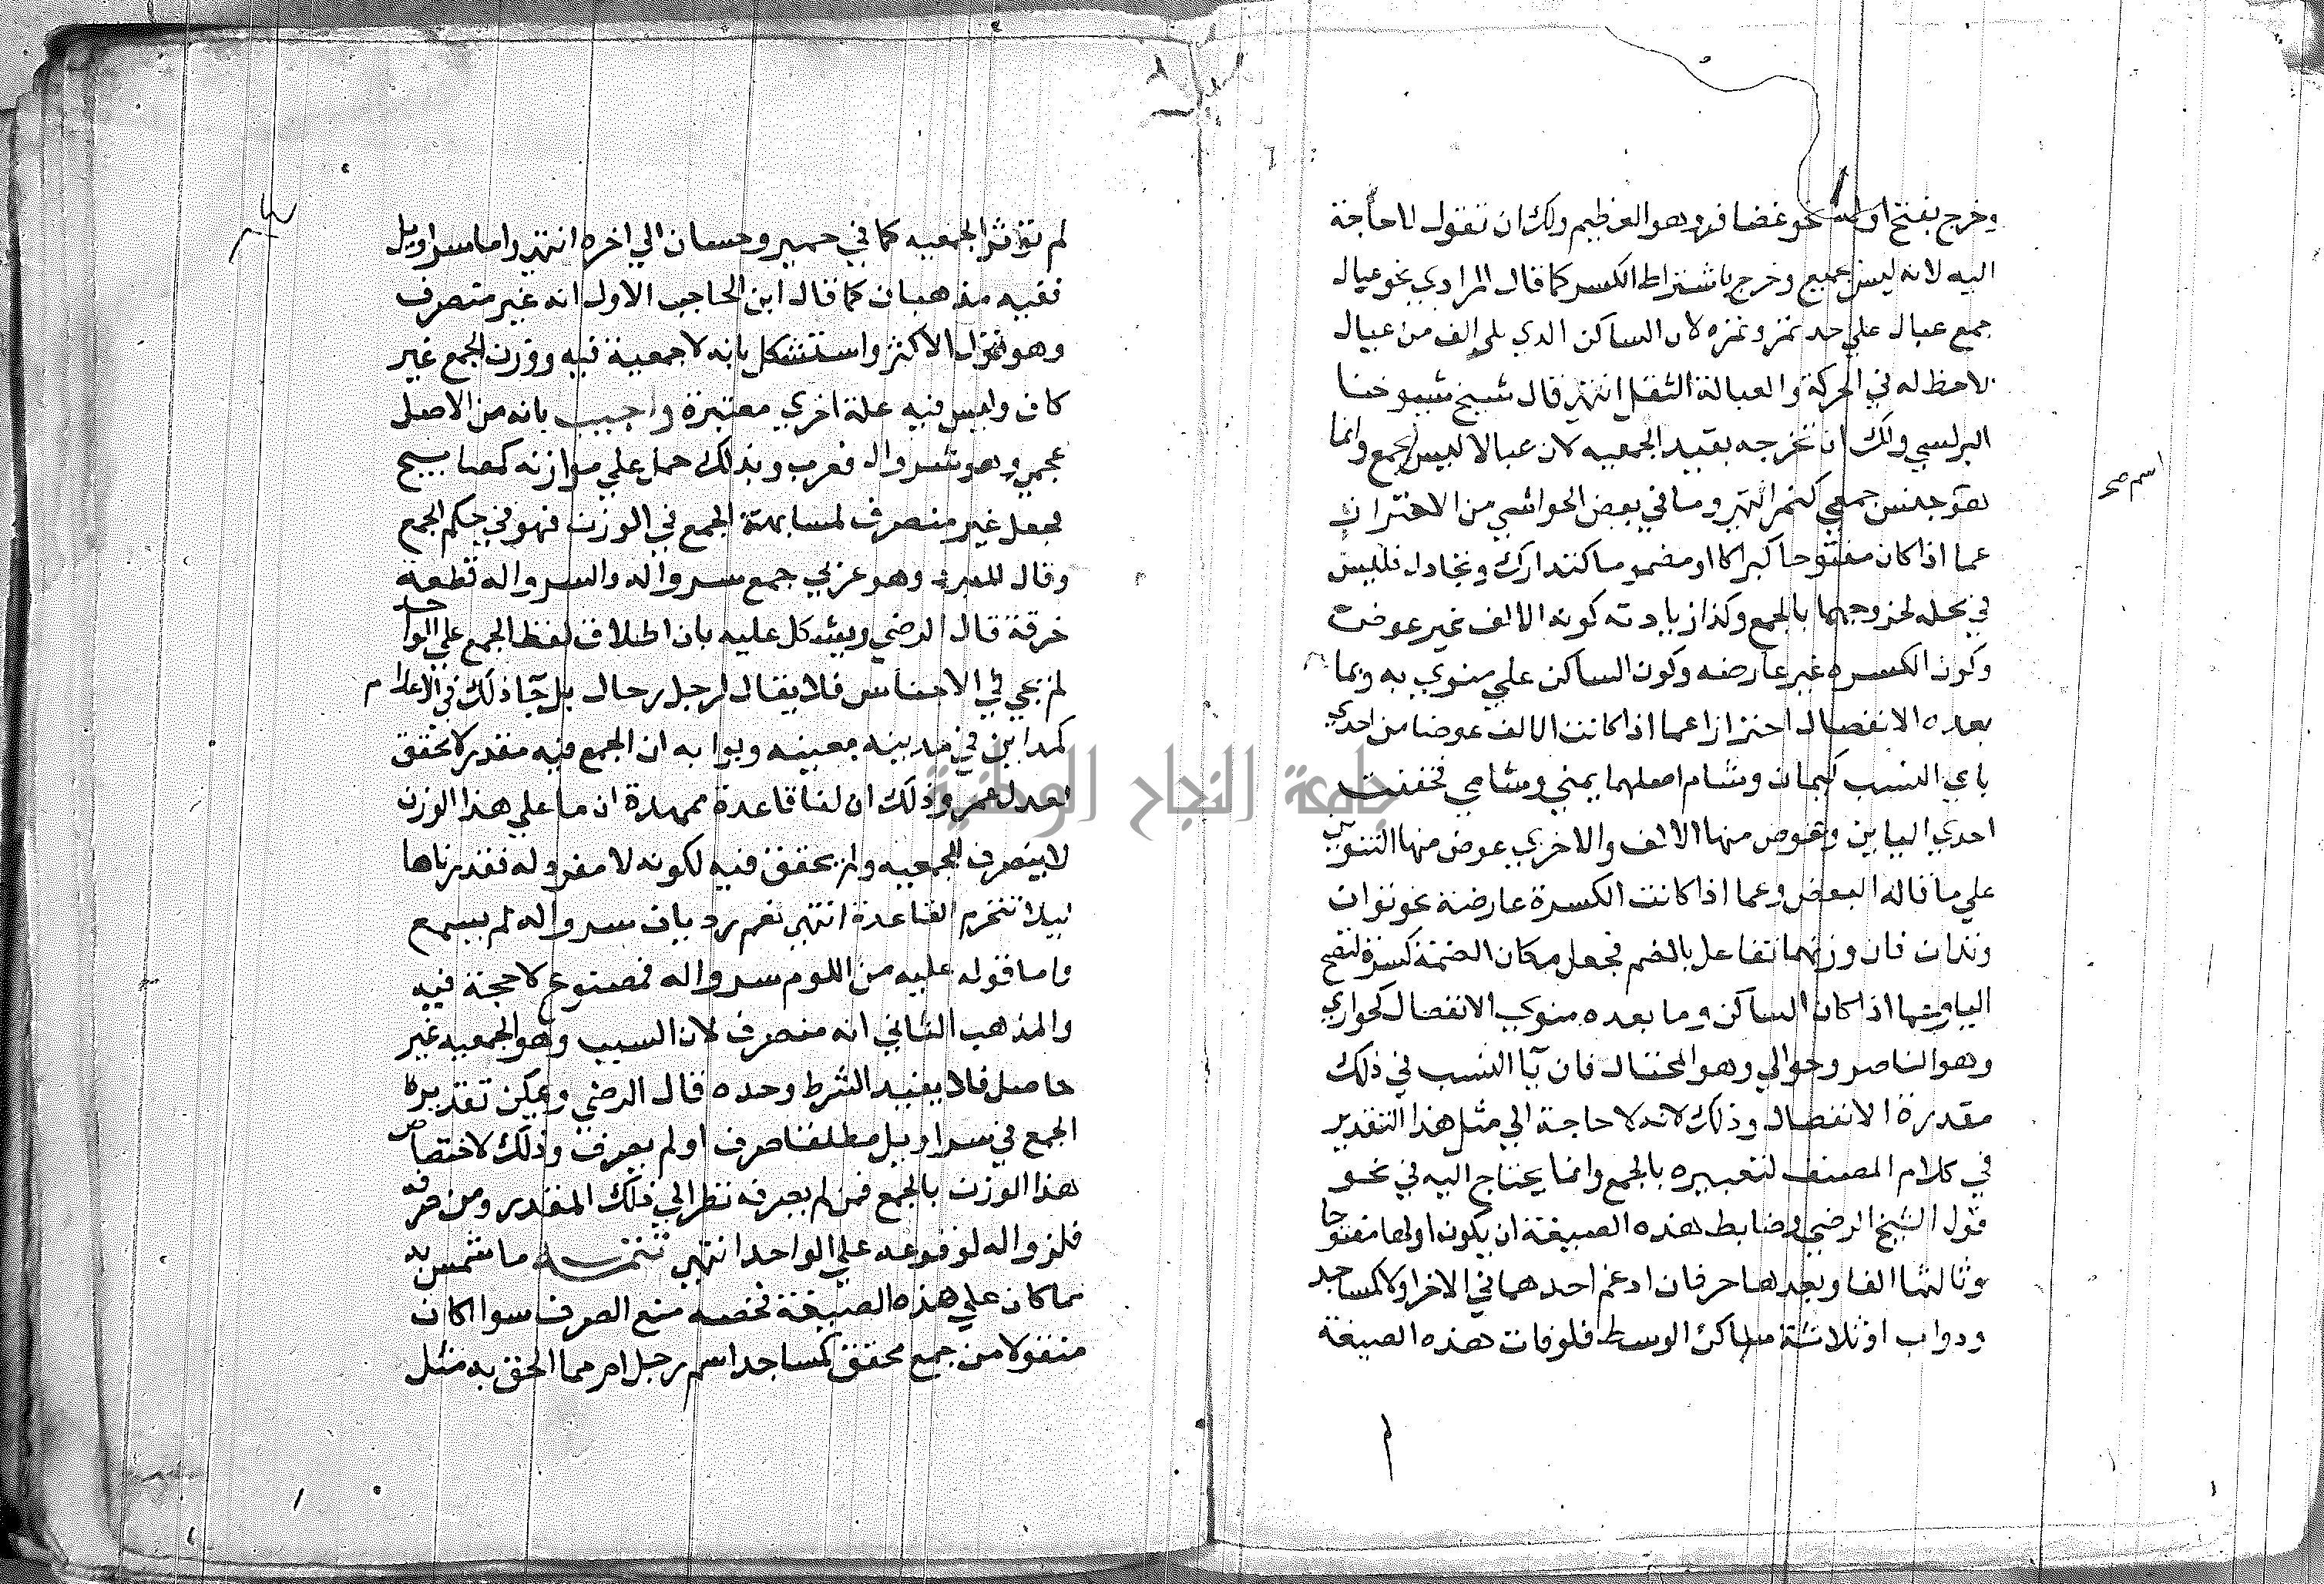 وخرج بفتح اوله نحو غضافر وهو العظيم ولك ان تقول لا حاجة
اليه لانه ليس بجميع وخرج باشتراط الكسر كما قال المرادي نحو عبال
جمع عبال علي حد تمر وتمره لان الساكن الدي يلي الف من عبال
لاحظ له في الحركة والعبالة الثقل انتهر قال شيخ شيوخنا
البرلسي ولك ان تخرجه بقيد الجمعيه لان عبالا ليس بجمع وانما
اسم صح
هو جنس جمعي كتمر انتهر وما في بعض الحواشي من الاحتراز
عما اذا كان مفتوحا كبراكا او مضموما كتدارك وتجادل فليس
في محله لخروجهما بالجمع وكذا زيادته كونه الالف غير عوض
وكون الكسره غير عارضه وكون الساكن علي منوي به وبما
بعده الانفصال احترازا عما اذا كانت الالف عوضا من احدي
ياي النسب كيمان وشام اصلهما يمني وشامي فخففت
احدي اليايين وعوض منها الالف والاخري عوض منها التنوين
علي ما قاله البعض وعما اذا كانت الكسرة عارضة نحو توان
وتدان فان وزنهما تفاعل بالضم فجعل مكان الضمة كسرة لتصح
اليا ومنها اذا كان الساكن وما بعده منوي الانفصال كحواري
وهو الناصر وحوالي وهو المحتال فان يآ النسب في ذلك
مقدرة الانفصال وذلك لانه لا حاجة الي مثل هذا التقدير
في كلام المصنف لتعبيره بالجمع وانما يحتاج اليه في نحو
قول الشيخ الرضي وضابط هذه الصيغة ان يكون اولها مفتوحا
وثالثها الفا وبعدها حرفان ادغم احدهما في الاخر اولا كمساجد
ودواب او ثلاثة ساكن الوسط فلوفات هذه الصيغة
لم تؤثر الجمعيه كما في حمير وحسان الي اخره انتهر واما سراويل
ففيه مذهبان كما قال ابن الحاجب الاول انه غير منصرف
وهو قول الاكثر واستشكل بانه لا جمعية فيه ووزن الجمع غير
كاف وليس فيه علة اخري معتبرة واجيب بانه من الاصل
عجمي وهو شروال فعرب وبذلك حمل علي موازنه كمصابيح
فجعل غير منصرف لمشابهة الجمع في الوزن فهو في حكم الجمع
وقال المبرد وهو عربي جمع سرواله والسرواله قطعة
خرقة قال الرضي ويشكل عليه بان اطلاق لفظ الجمع علي الواحد
لم يجي في الاجناس فلا يقال لرجل رجال بل جآ ذلك في الاعلام
كمداين في مدينه معينه وجوابه ان الجمع فيه مقدر لا محقق
كعدل عمر وذلك ان لنا قاعدة ممهدة ان ما علي هذا الوزن
لا ينصرف للجمعيه ولم يتحقق فيه لكونه لا مفرد له فقدرناها
ليلا تنخرم القاعدة انتهر نعم رد بان سرواله لم يسمع
واما قوله عليه من اللوم سرواله فمصنوع لا حجة فيه
والمذهب الثاني انه منصرف لان السبب وهو الجمعيه غير
حاصل فلا يفيد الشرط وحده قال الرضي ويمكن تقديره
الجمع في سراويل مطلقا صرف او لم يصرف وذلك لاختصاص
هذا الوزن بالجمع فمن لم يصرفه نظر الي ذلك المقدر ومن صرفه
فلزواله لوقوعه علي الواحد انتهر تتمه ما سمي به
مما كان علي هذه الصيغة فحقه منع الصرف سوا كان
منقولا من جمع محقق كمساجد اسم رجل ام مما الحق به مثل
جامعة النجاح الوطنية